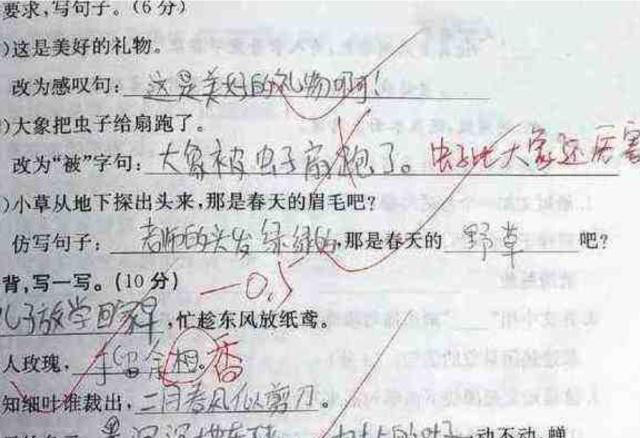 要求,写句子。(6分)
)这是美好的礼物。
改为感叹句: 这是美好的礼物啊!
)大象把虫子给扇跑了。
改为“被”字句: 大象被虫子扇跑了。 虫子比大象还厉害
)小草从地下探出头来,那是春天的眉毛吧?
仿写句子: 老师的头发绿绿的,那是春天的 野草 吧?
背,写一写。(10分) -0.5
儿子放学回家早,忙趁东风放纸鸢。
人玫瑰, 手留余相。 香
知细叶谁裁出, 二月春风似剪刀。
一动不动,蝉